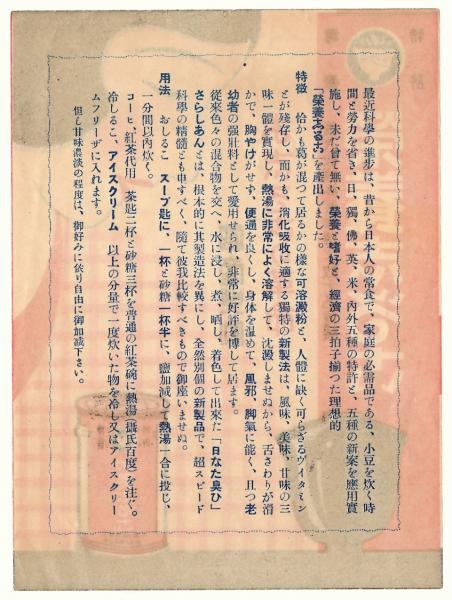 最近科學の進步は、昔から日本人の常食で、家庭の必需品である、小豆を炊く時
間と勞力を省き、日、獨、佛、英、米、內外五種の特許と、五種の新案を應用實
施し、未だ曾て無い、榮養と嗜好と、經濟の三拍子揃つた理想的
「榮養しるこ」を產出しました。
特徵 恰かも葛が混つて居るかの樣な可溶澱粉と、人體に缺く可らざるヴイタミン
とが殘存し、而かも、消化吸收に適する獨特の新製法は、風味、美味、甘味の三
味一體を實現し、熱湯に非常によく溶解して、沈澱しませぬから、舌ざわりが滑
かで、胸やけがせず、便通を良くし、身體を溫めて、風邪、脚氣に能く、且つ老
幼者の强壯料として愛用せられ、非常に好評を博して居ます。
從來色々の混合物を交へ、水に浸し、煮、晒し、着色して出來た「日なた臭ひ」
さらしあんとは、根本的に其製造法を異にし、全然別個の新製品で、超スピード
科學の精髓とも申すべく、隨て彼我比較すべきもので御座いませぬ。
用法 おしるこ スープ匙に、一杯と砂糖一杯半に、鹽加減して熱湯一合に投じ、
一分間以內炊く。
コーヒ、紅茶代用 茶匙二杯と砂糖三杯を普通の紅茶碗に熱湯(攝氏百度)を注ぐ。
冷しるこ、アイスクリーム 以上の分量で一度炊いた物を冷し又はアイスクリー
ムフリーザに入れます。
但し甘味濃淡の程度は、御好みに依り自由に御加減下さい。